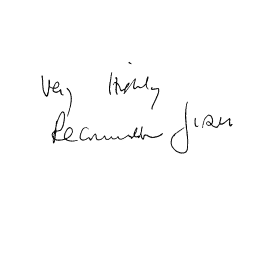 Very Highly
Recommended